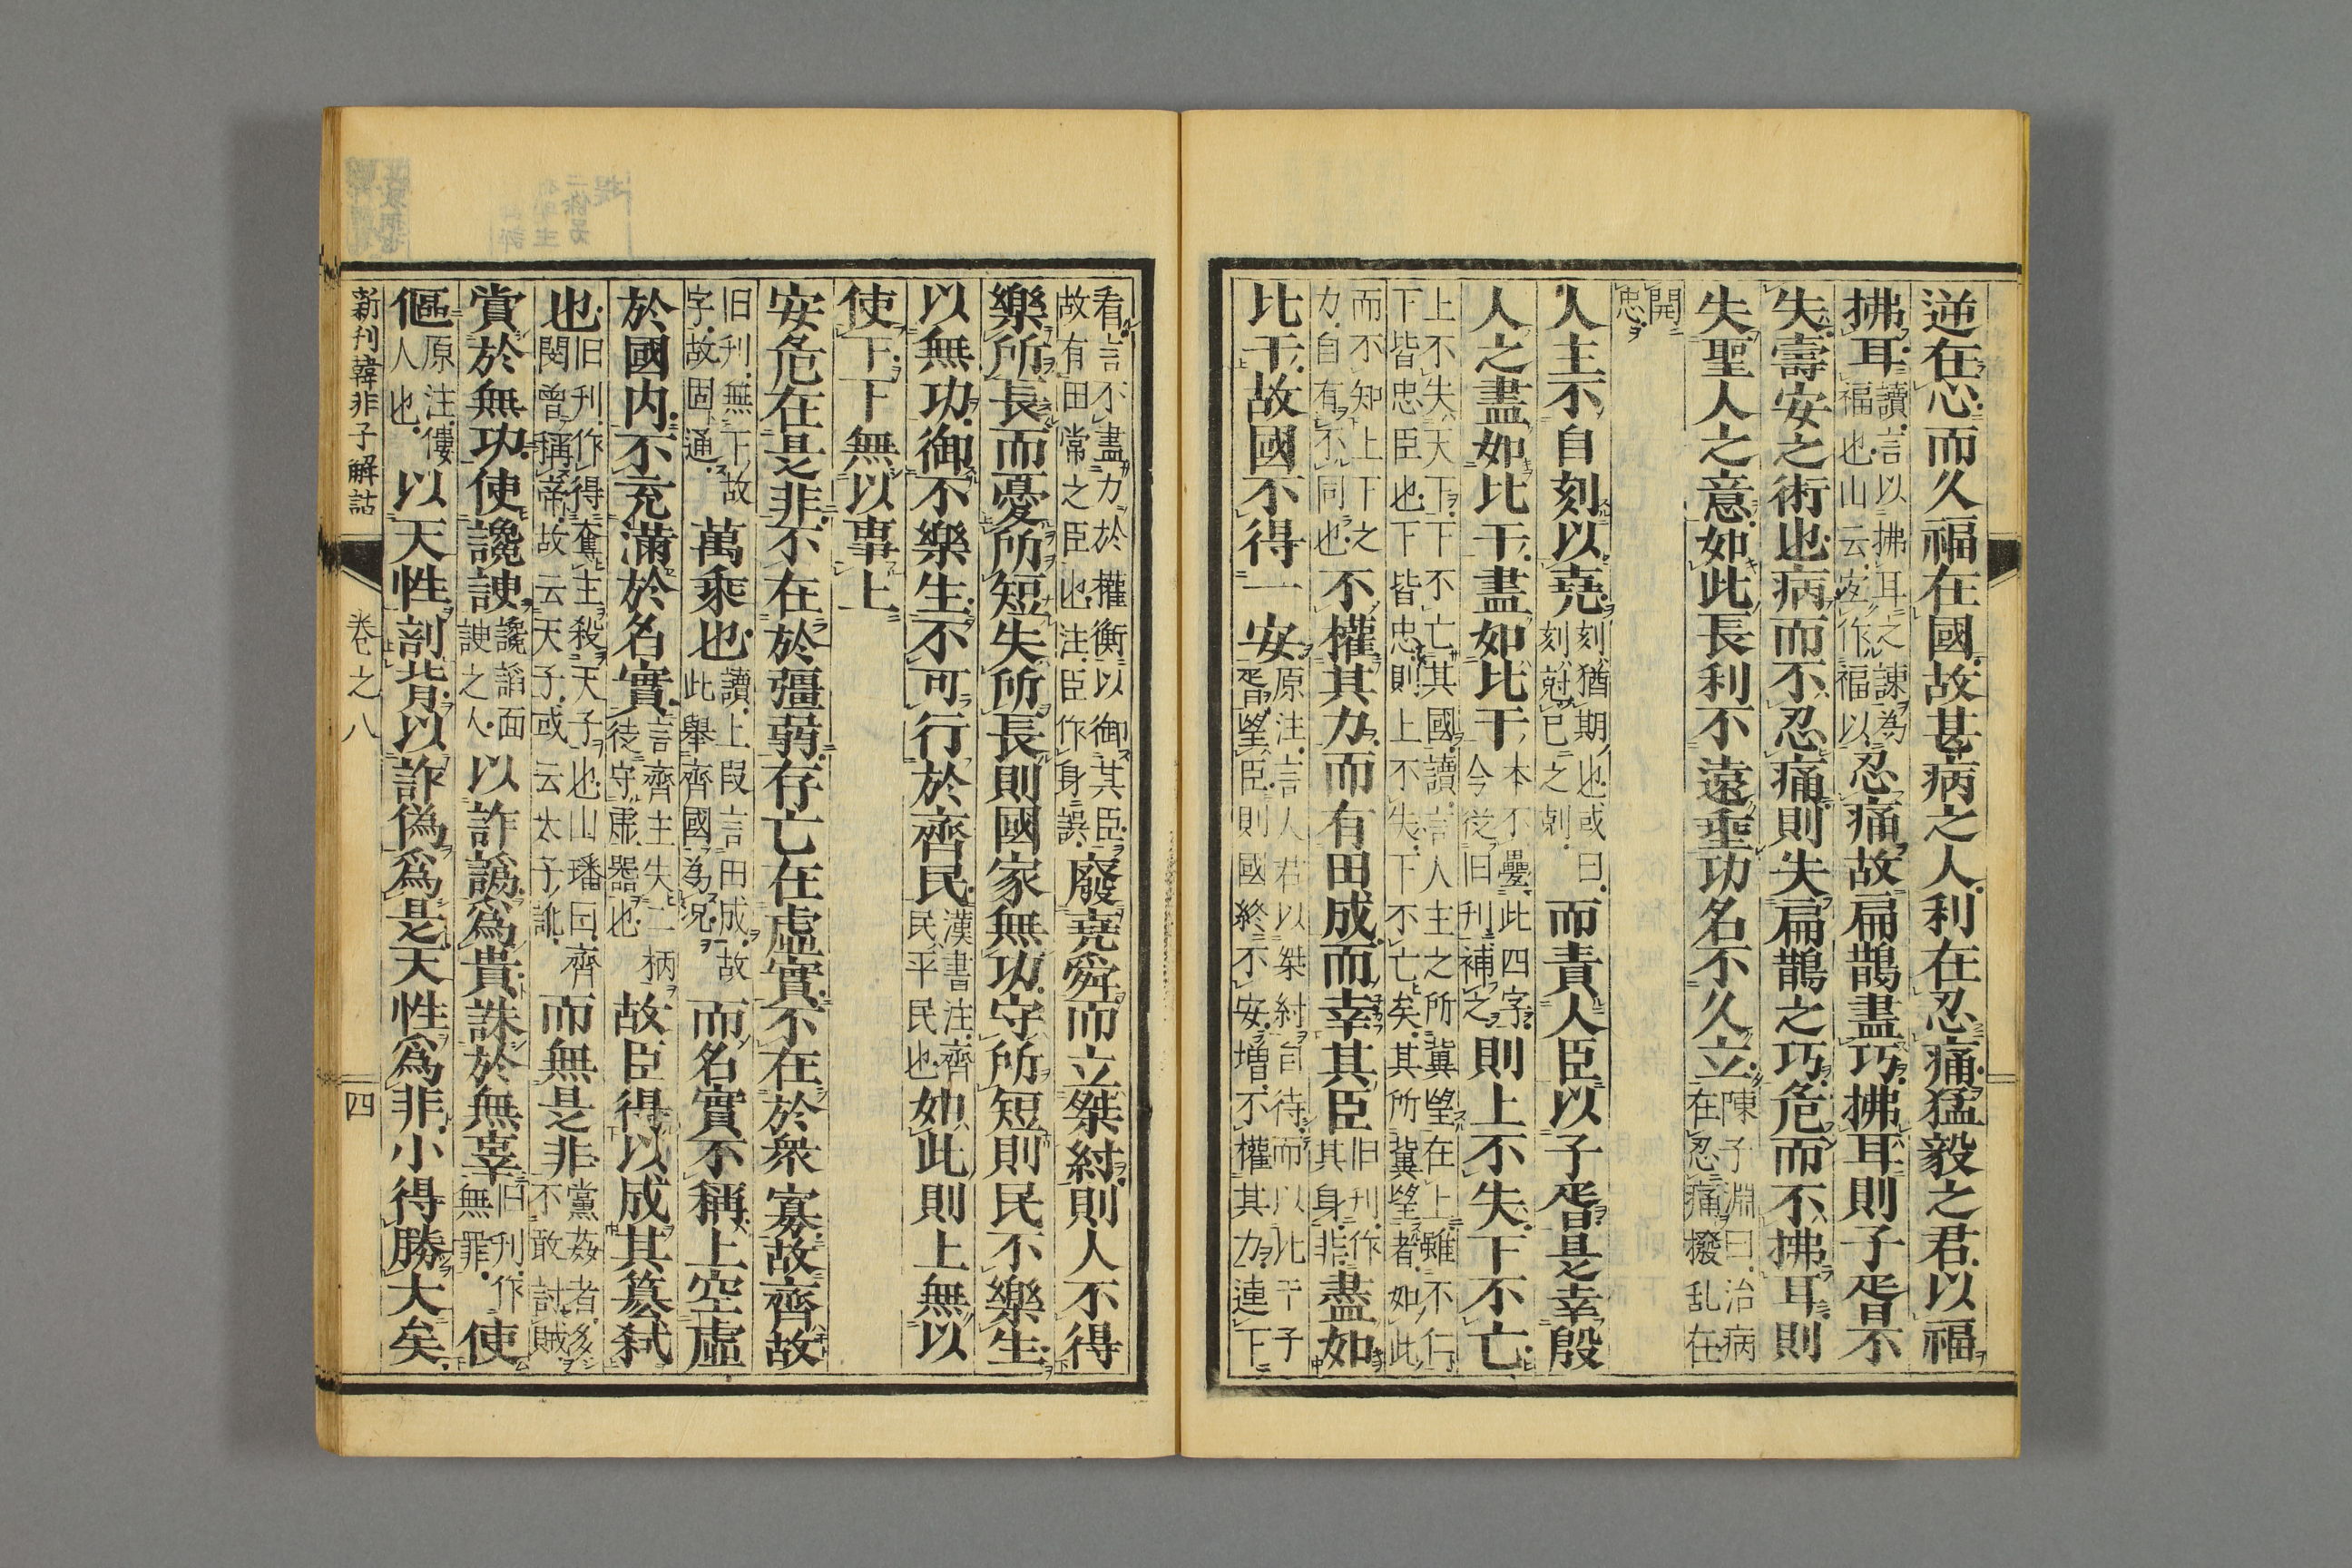 逆在心而久福在國故甚病之人利在忍痛猛毅之君以福
拂耳讀言以拂耳之諫為福也山云安作福以忍痛故扁鵲盡巧拂耳則子胥不
失壽安之術也病而不忍痛則失扁鵲之巧危而不拂耳則
失聖人之意如此長利不遠埀功名不久立陳子淵曰治病在忍痛撥乱在
開忠
人主不自刻以堯刻猶期也或曰刻尅己之剋而責人臣以子胥是幸殷
人之盡如比干盡如比干本不疊此四字今從旧刊補之則上不失下不亡
上不失天下下不亡其國讀言人主之所冀望在上雖不仁下皆忠臣也下皆忠則上不失下不亡矣其所冀望者如此
而不知上下之力自有不同也不權其力而有田成而幸其臣旧刊作其身非盡如
比干故國不得一安原注言人君以桀紂自待而以比干子胥望臣則國終不安增不權其力連下
看言不盡力於權衡以御其臣故有田常之臣也注臣作身誤廢堯舜而立桀紂則人不得
樂所長而憂所短失所長則國家無功守所短則民不樂生
以無功御不樂生不可行於齊民漢書注齊民平民也如此則上無以
使下下無以事上
安危在是非不在於彊弱存亡在虛實不在於衆寡故齊故
旧刊無下故字故固通萬乘也讀上段言田成故此舉齊國為況而名實不稱上空虛
於國内不充滿於名實言齊主失二柄徒守虛器也故臣得以成其篡弒
也旧刊作得奪主殺天子也山璠曰齊閔曾稱帝故云天子或云太子訛而無是非黨姦者多不敢討賊
賞於無功使讒諛讒謟面諛之人以詐譌為貴誅於無辜旧刊作無罪使
傴原注僂人也以天性剖背以詐僞爲是天性爲非小得勝大矣
新刊韓非子解詁
卷之八
四